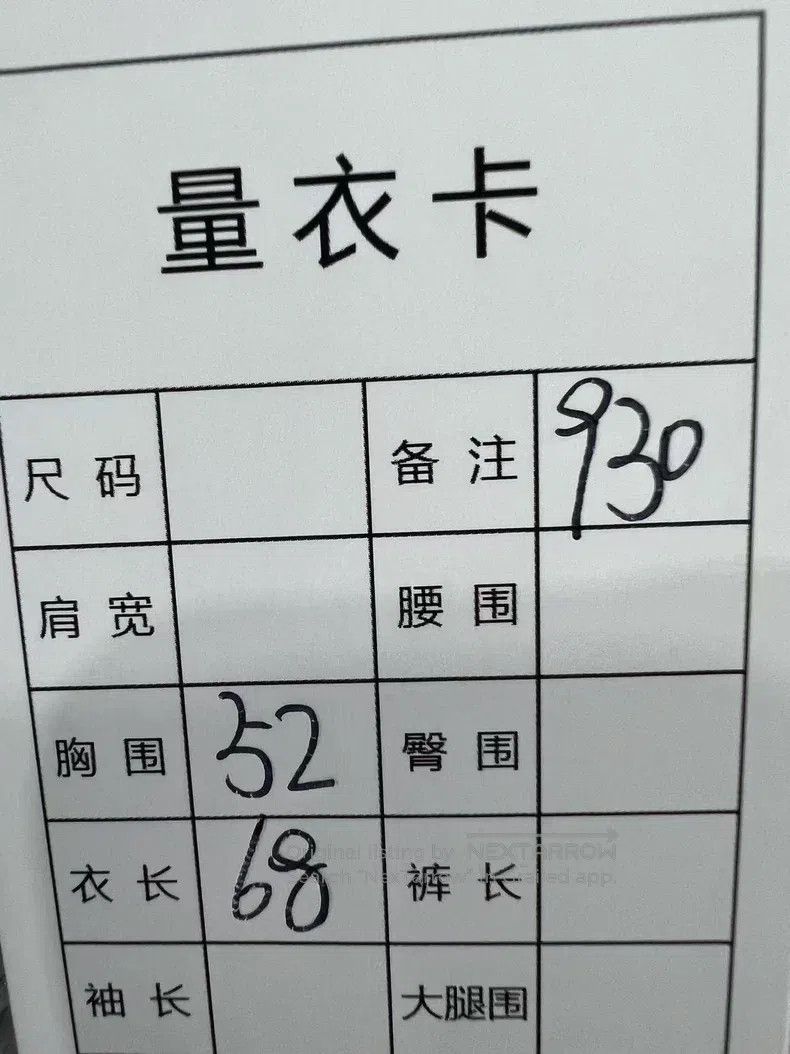 量衣卡
尺码 备注 930
肩宽 腰围
胸围 52 臀围
衣长 68 裤长
Original listing by NEXTARROW
Search "NexTarrow" in related app.
袖长 大腿围